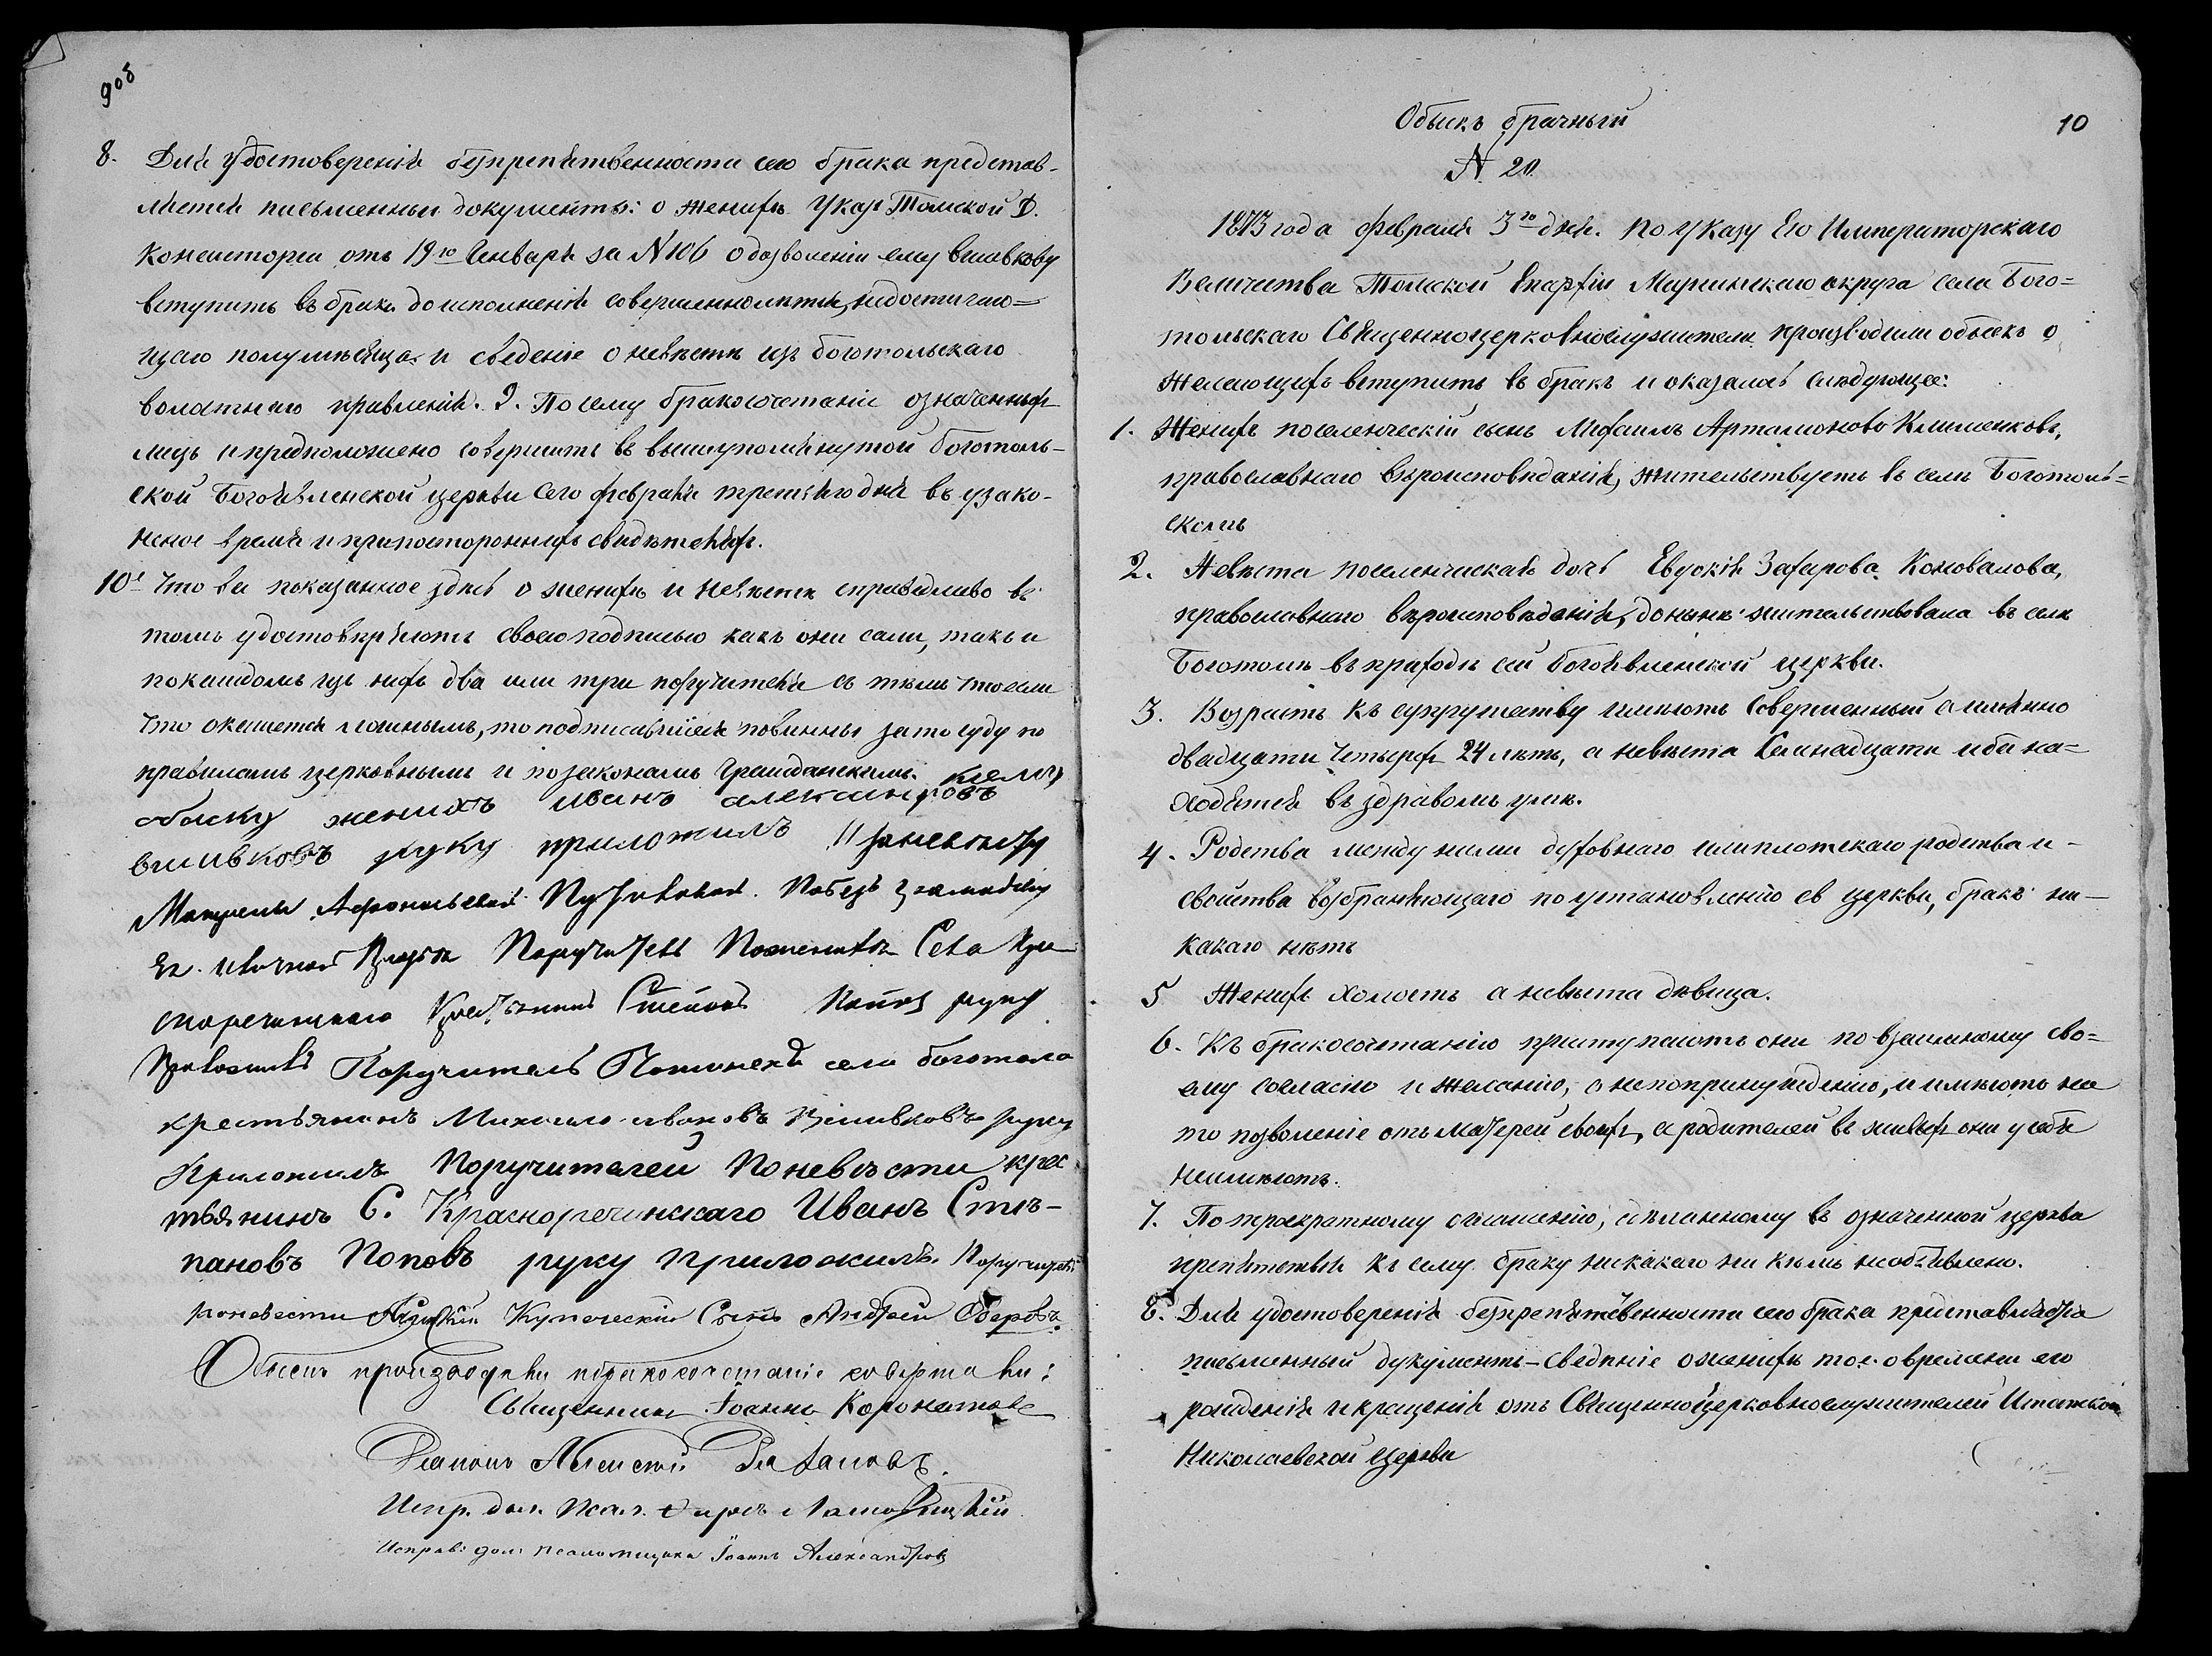 9об
8. Для удостоверенія безпрепятственности сего брака представ-
ляются письменныи документы: о женихѣ Указ Томской Д.
Консисторіи отъ 19го Января за N 106 о дозволеніи ему Вшивкову
вступить въ бракъ до исполненія совершеннолѣтія, недостигаю=
щаго полумѣсяца и сведеніе о невѣстѣ изъ боготольскаго
волостнаго правленія. 9. По сему бракосочетаніе означенныхъ
лицъ и предположено совершить въ вышеупомянутой Боготоль-
ской Богоявленской церкви сего февраля третьяго дня въ узако-
неное время и при постороннихъ свидѣтеляхъ.
10е Что все показанное здѣсь о женихѣ и невѣстѣ справедливо въ
томъ удостовѣряютъ своею подписью какъ они сами, такъ и
по каждомъ изъ нихъ два или три поручителя съ тѣмъ что если
что окажется ложнымъ, то подписавшіеся повинны за то суду по
правиламъ церковнымъ и по законамъ Гражданскимъ. Ксему
обыску женихъ Иванъ Александровъ
Вшивковъ руку приложилъ
Поручитель Поженихѣ Села
Крестьянинъ Степанъ Поповъ руку
Приложилъ Поручитель Поженехѣ села боготола
крестьянинъ Михаило Ивановъ Вшивковъ руку
Приложилъ Поручителей Поневѣсти крес
тьянинъ С. Краснореченскаго Иванъ Стѣ-
пановъ Поповъ руку приложилъ. Поручитель
поневести Купеческій Сынъ Андрей
Обыскъ производили и бракосочетаніе совершали:
Священникъ Іоаннъ Коронатовъ
Діаконъ Алексѣй
Испр. дол.
Исправ: дол: псаломщика Іоаннъ Александровъ
10
Обыскъ брачный
N 20.
1873 года февраля 3го дня. По Указу Его Императорскаго
Величества Томской Епархіи Маріинскаго округа села Бого=
тольскаго Священноцерковнослужители производили обыскъ о
желающихъ вступить въ бракъ и оказалось слѣдующее:
1. Женихъ поселенческій сынъ Михаилъ Артамоновъ Клименковъ,
православнаго вѣроисповѣданія, жительствуетъ въ селѣ Боготоль=
скомъ
2. Невѣста поселенческая дочь Евдокія Захарова Коновалова,
православнаго вѣроисповѣданія, донынѣ жительствовала въ селѣ
Боготолѣ въ приходѣ сей богоявленской церкви.
3. Возрастъ къ супружеству имѣютъ совершенный а именно
двадцати четырехъ 24 лѣтъ, а невѣста семнадцати и оба на=
ходятся въ здравомъ умѣ.
4. Родства между ними духовнаго или плотскаго родства и-
свойства возбраняющаго по установленію св церкви, бракъ ни-
какаго нѣтъ
5 Женихъ холостъ а невѣста дѣвица.
6. Къ бракосочетанію приступаютъ они по взаимному сво=
ему согласію и желанію, а не по принужденію, и имѣютъ на
то позволеніе отъ матерей своихъ, а родителей въ живыхъ они у себя
неимѣютъ.
7. По троекратному оглашенію, сдѣланному въ означенной церкви
препятствія къ сему браку никакаго ни кѣмъ необъявлено.
8. Для удостоверенія безпрепятственности сего брака представляются
письменный документъ-сведѣніе о женихѣ то е. о времени его
рожденія и крещенія отъ Священноцерковнослужителей Итатской
Николаевской церкви